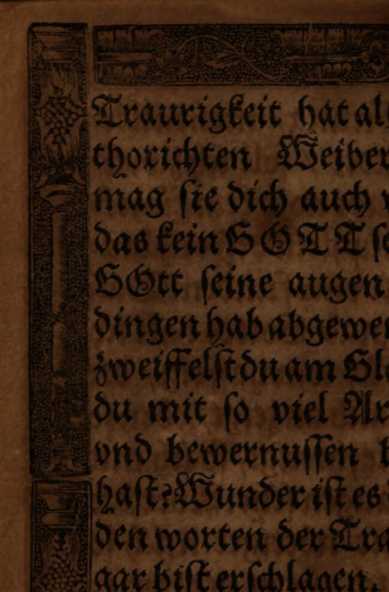 Traurigkeit hat al
thorichten Weiber
mag sie dich auch
das kein GOTT se
GOtt seine augen
dingen hab abgewe
zweiffelst du am Gl
du mit so viel Ar
vnd bewernussen
hast? Wunder ist es
den worten der Tra
gar bist erschlagen.